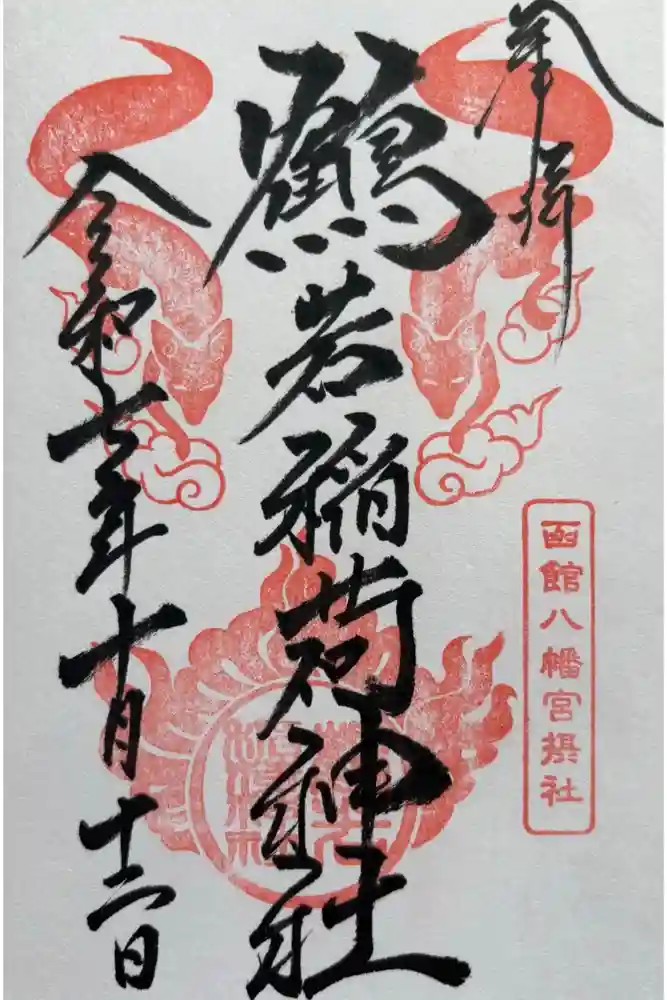 奉拝
函館八幡宮摂社
鶴若稲荷神社
令和七年十月十二日